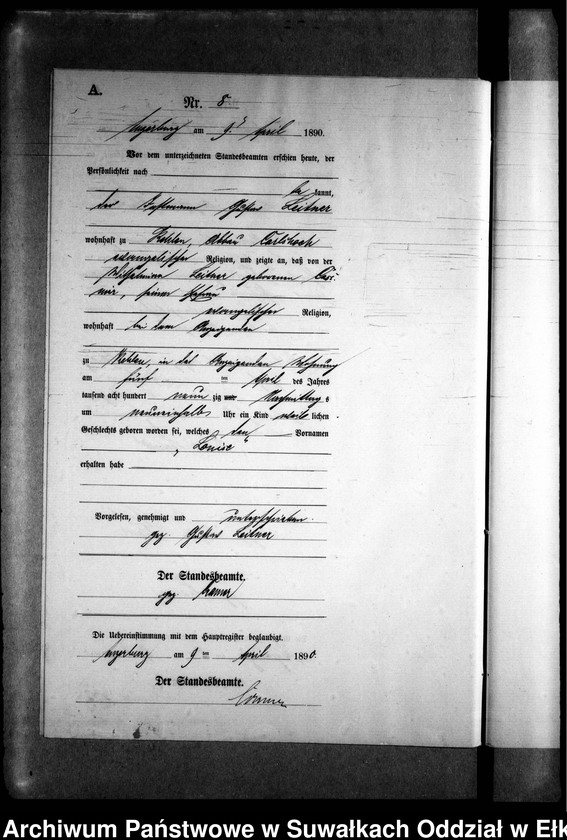 A.
Nr. 8
Angerburg am 9. April 1890.
Vor dem unterzeichneten Standesbeamten erschien heute, der
Persönlichkeit nach
be kannt,
der Gustav Leitner
wohnhaft zu Kehlen, Abbau
evangelischer Religion, und zeigte an, daß von der
Wilhelmine Leitner geborenen
seiner Ehefrau
evangelischer Religion,
wohnhaft bei dem Anzeigenden
zu Kehlen, in des Anzeigenden Wohnung
am fünf ten April des Jahres
tausend acht hundert neun zig und Nachmittags
um neuneinhalb Uhr ein Kind weib lichen
Geschlechts geboren worden sei, welches den Vornamen
„Louise“
erhalten habe
Vorgelesen, genehmigt und unterschrieben.
gez. Gustav Leitner
Der Standesbeamte.
gez
Die Uebereinstimmung mit dem Hauptregister beglaubigt.
Angerburg am 9 ten April 1890.
Der Standesbeamte.
Archiwum Państwowe w Suwałkach Oddział w Ełk